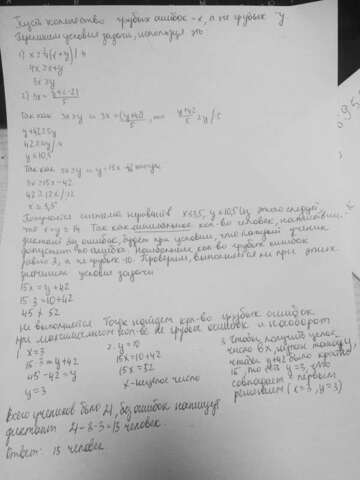 Пусть количество грубых ошибок - x, а не грубых y
Запишем условия задачи, используя это
1) x > 1/4 (x + y) / · 4
4x > x + y
3x > y
2) 3x = (y + 42) / 5
Так как 3x > y и 3x = (y+42)/5, то (y+42)/5 > y / · 5
y + 42 > 5y
42 > 4y / : 4
y < 10,5
Так как 3x > y и y = 15x - 42
3x > 15x - 42
42 > 12x / : 12
x < 3,5
Получаем систему неравенств x < 3,5, y < 10,5 Из этого следует,
что x + y = Так как минимальное кол-во человек, написавших
диктант без ошибок, будет при условии, что каждый ученик
допустит по ошибке. Наибольшее кол-во грубых ошибок
равно 3, а не грубых - 10. Проверим, выполняется ли при этих
значениях условие задачи
15x = y + 42
15 · 3 = 10 + 42
45 ≠ 52
Не выполняется Тогда найдем кол-во грубых ошибок
при максимальном кол-ве не грубых ошибок и наоборот
1. x = 3
15 · 3 = y + 42
45 - 42 = y
y = 3
2. y = 10
15x = 10 + 42
15x = 52
x - нецелое число
3. Чтобы получить целое
число в x, нужно
чтобы y + 42 было кратно
15, то есть y = 3, это
совпадает с первым
решением (x = 3, y = 3)
Всего учеников было 21, без ошибок напишут
диктант 21 - 3 - 3 = 15 человек.
Ответ: 15 человек.